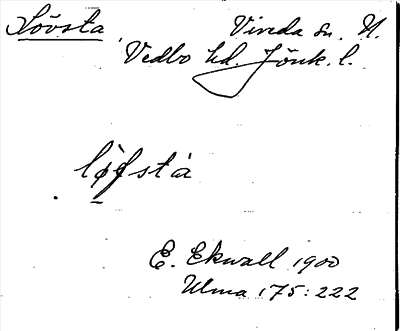 Lövsta Vireda sn. N.
Vedbo hd. Jönk. l.
lø̀fstà
E. Ekwall 1900
Ulma 175:222